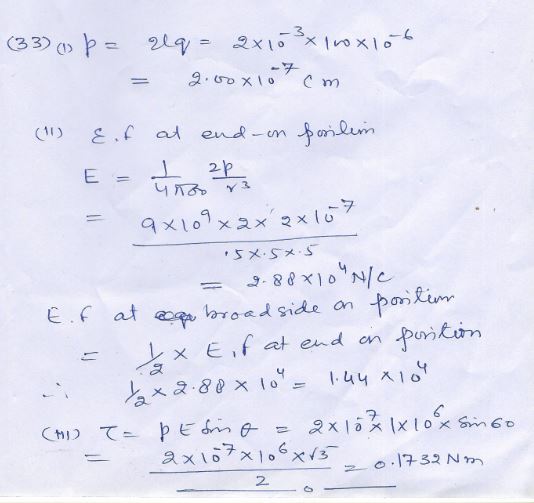 (33) (i) p = 2lq = 2×10⁻³×100×10⁻⁶
= 2.00×10⁻⁷ C m
(ii) E.f at end-on position
E = 1/4π∈₀ 2p/r³
= 9×10⁹×2×2×10⁻⁷ / .5×.5×.5
= 2.88×10⁴ N/C
E.f at broad side on position
= 1/2 × E.f at end on position
∴ 1/2 × 2.88 × 10⁴ = 1.44 × 10⁴
(iii) τ = pE sin θ = 2×10⁻⁷×1×10⁶× sin 60
= 2×10⁻⁷×10⁶×√3 / 2 = 0.1732 Nm